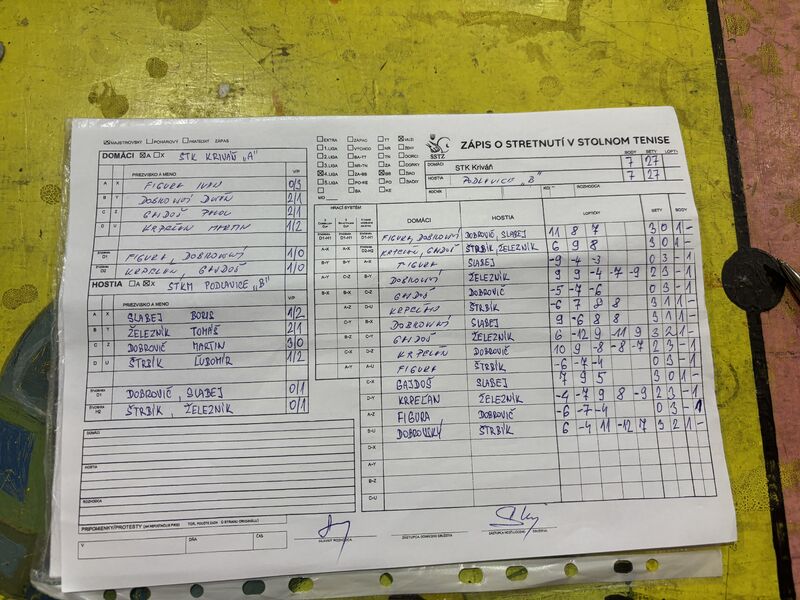 MAJSTROVSKÝ POHÁROVÝ PRIATEĽSKÝ ZÁPAS
DOMÁCI A X STK KRIVÁŇ "A"
PRIEZVISKO A MENO V/P
A X FIGURA IVAN 0/3
B Y 2/1
C Z GAJDOŠ 2/1
D U KREPELÁN MARTIN 1/2
D1 FIGURA, DOBROVSKÝ 1/0
D2 KREPELÁN, GAJDOŠ 1/0
HOSTIA A X STKM PODLAVICE "B"
PRIEZVISKO A MENO V/P
A X SLABEJ BORIS 1/2
B Y ŽELEZNÍK TOMÁŠ 2/1
C Z DOBROVIČ MARTIN 3/0
D U ŠTRBÍK ĽUBOMÍR 1/2
DOBROVIČ, SLABEJ 0/1
ŠTRBÍK, ŽELEZNÍK 0/1
DOMÁCI
HOSTIA
ROZHODCA
PRIPOMIENKY/PROTESTY
V DŇA ČAS
EXTRA ZÁPAD TT MUŽI
1. LIGA VÝCHOD NR ŽENY
2. LIGA BA-TT TN DORCI
3. LIGA NR-TN ZA DORKY
4. LIGA ZA-BB BB ŽIACI
5. LIGA PO-KE PO ŽIAČKY
BA KE
SSTZ
ZÁPIS O STRETNUTÍ V STOLNOM TENISE
BODY SETY LOPT.
DOMÁCI STK Kriváň 7 27
HOSTIA PODLAVICE "B" 7 27
ROČNÍK KOLO ROZHODCA
HRACÍ SYSTÉM DOMÁCI HOSTIA LOPTIČKY SETY BODY
FIGURA, DOBROVSKÝ DOBROVIČ, SLABEJ 11 8 7 3 0 1 -
KREPELÁN, GAJDOŠ ŠTRBÍK, ŽELEZNÍK 6 9 8 3 0 1 -
FIGURA SLABEJ -9 -4 -3 0 3 - 1
DOBROVSKÝ ŽELEZNÍK 9 9 -4 -7 -9 2 3 - 1
GAJDOŠ DOBROVIČ -5 -7 -6 0 3 - 1
KREPELÁN ŠTRBÍK -6 7 8 8 3 1 1 -
DOBROVSKÝ SLABEJ 9 -6 8 8 3 1 1 -
GAJDOŠ ŽELEZNÍK 6 -12 9 -11 9 3 2 1 -
KREPELÁN DOBROVIČ 10 9 -8 -8 -7 2 3 - 1
FIGURA ŠTRBÍK -6 -7 -4 0 3 - 1
C-X GAJDOŠ SLABEJ 7 9 5 3 0 1 -
D-Y KREPELÁN ŽELEZNÍK -4 -7 9 8 -9 2 3 - 1
A-Z FIGURA DOBROVIČ -6 -7 -4 0 3 - 1
B-U DOBROVSKÝ ŠTRBÍK 6 -4 11 -12 7 3 2 1 -
D-X
A-Y
B-Z
D-U
HLAVNÝ ROZHODCA ZÁSTUPCA DOMÁCEHO DRUŽSTVA ZÁSTUPCA HOSŤUJÚCEHO DRUŽSTVA